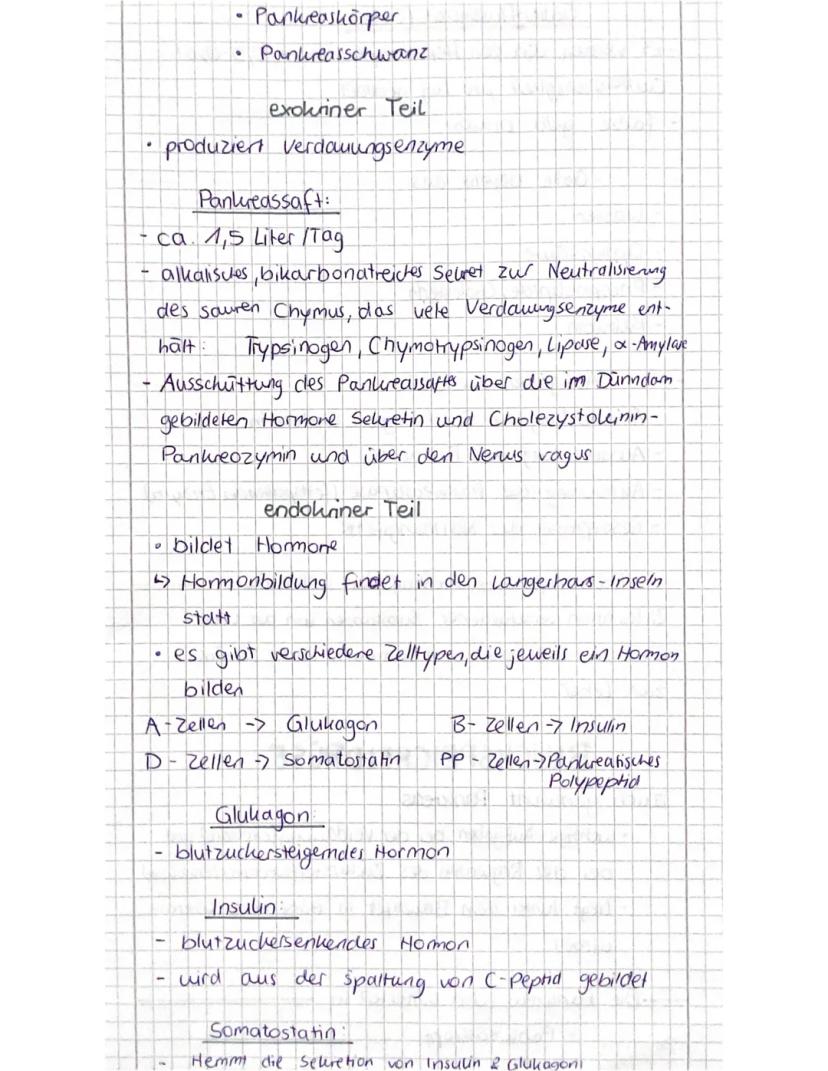 • Pankreaskörper
• Pankreasschwanz
exokriner Teil
• produziert Verdauungsenzyme
Pankreassaft:
- ca. 1,5 Liter / Tag
- alkalisches, bikarbonatreiches Sekret zur Neutralisierung
des sauren Chymus, das viele Verdauungsenzyme ent-
hält: Trypsinogen, Chymotrypsinogen, Lipase, α-Amylase
- Ausschüttung des Pankreassaftes über die im Dünndarm
gebildeten Hormone Sekretin und Cholezystokinin-
Pankreozymin und über den Nervus vagus
endokriner Teil
• bildet Hormone
↳ Hormonbildung findet in den Langerhans-Inseln
statt
• es gibt verschiedene Zelltypen, die jeweils ein Hormon
bilden
A-Zellen -> Glukagon B-Zellen -> Insulin
D-Zellen -> Somatostatin PP-Zellen -> Pankreatisches
Polypeptid
Glukagon:
- blutzuckersteigerndes Hormon
Insulin:
- blutzuckersenkendes Hormon
- wird aus der Spaltung von C-Peptid gebildet
Somatostatin:
- Hemmt die Sekretion von Insulin & Glukagon